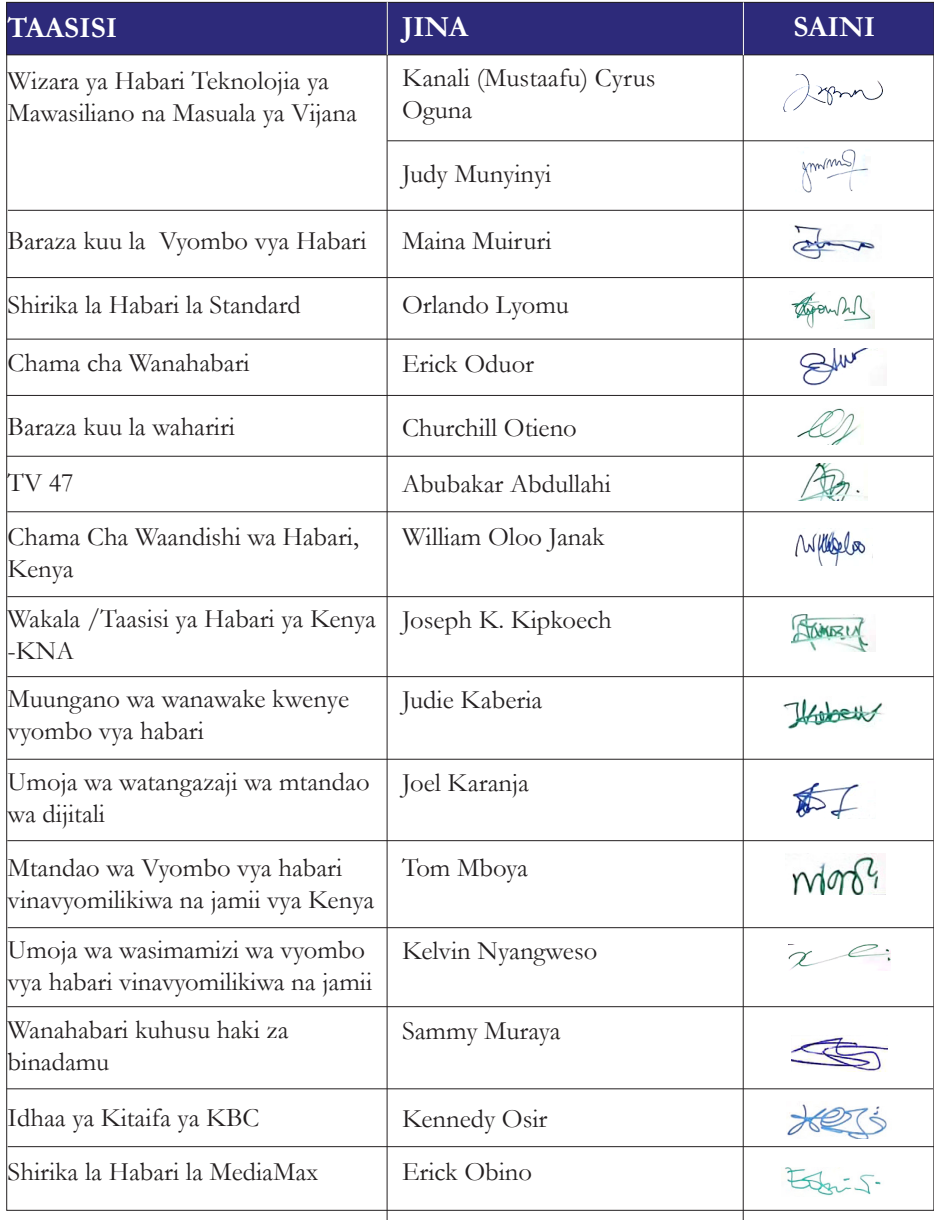 TAASISI JINA SAINI
Wizara ya Habari Teknolojia ya
Mawasiliano na Masuala ya Vijana
Kanali (Mustaafu) Cyrus
Oguna
Judy Munyinyi
Baraza kuu la Vyombo vya Habari Maina Muiruri
Shirika la Habari la Standard Orlando Lyomu
Chama cha Wanahabari Erick Oduor
Baraza kuu la wahariri Churchill Otieno
TV 47 Abubakar Abdullahi
Chama Cha Waandishi wa Habari,
Kenya
William Oloo Janak
Wakala /Taasisi ya Habari ya Kenya
-KNA
Joseph K. Kipkoech
Muungano wa wanawake kwenye
vyombo vya habari
Judie Kaberia
Umoja wa watangazaji wa mtandao
wa dijitali
Joel Karanja
Mtandao wa Vyombo vya habari
vinavyomilikiwa na jamii vya Kenya
Tom Mboya
Umoja wa wasimamizi wa vyombo
vya habari vinavyomilikiwa na jamii
Kelvin Nyangweso
Wanahabari kuhusu haki za
binadamu
Sammy Muraya
Idhaa ya Kitaifa ya KBC Kennedy Osir
Shirika la Habari la MediaMax Erick Obino